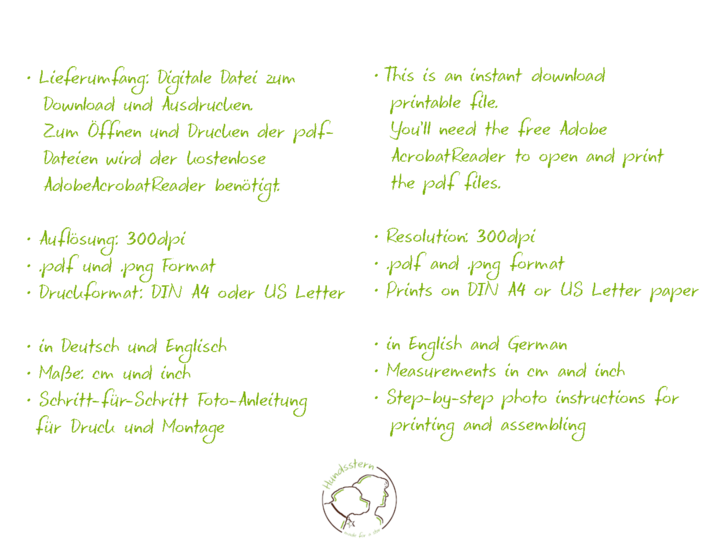 · Lieferumfang: Digitale Datei zum
Download und Ausdrucken.
Zum Öffnen und Drucken der pdf-
Dateien wird der kostenlose
AdobeAcrobatReader benötigt.
· Auflösung: 300dpi
· .pdf und .png Format
· Druckformat: DIN A4 oder US Letter
· in Deutsch und Englisch
· Maße: cm und inch
· Schritt-für-Schritt Foto-Anleitung
für Druck und Montage
· This is an instant download
printable file.
You'll need the free Adobe
AcrobatReader to open and print
the pdf files.
· Resolution: 300dpi
· .pdf and .png format
· Prints on DIN A4 or US Letter paper
· in English and German
· Measurements in cm and inch
· Step-by-step photo instructions for
printing and assembling
Hundsstern